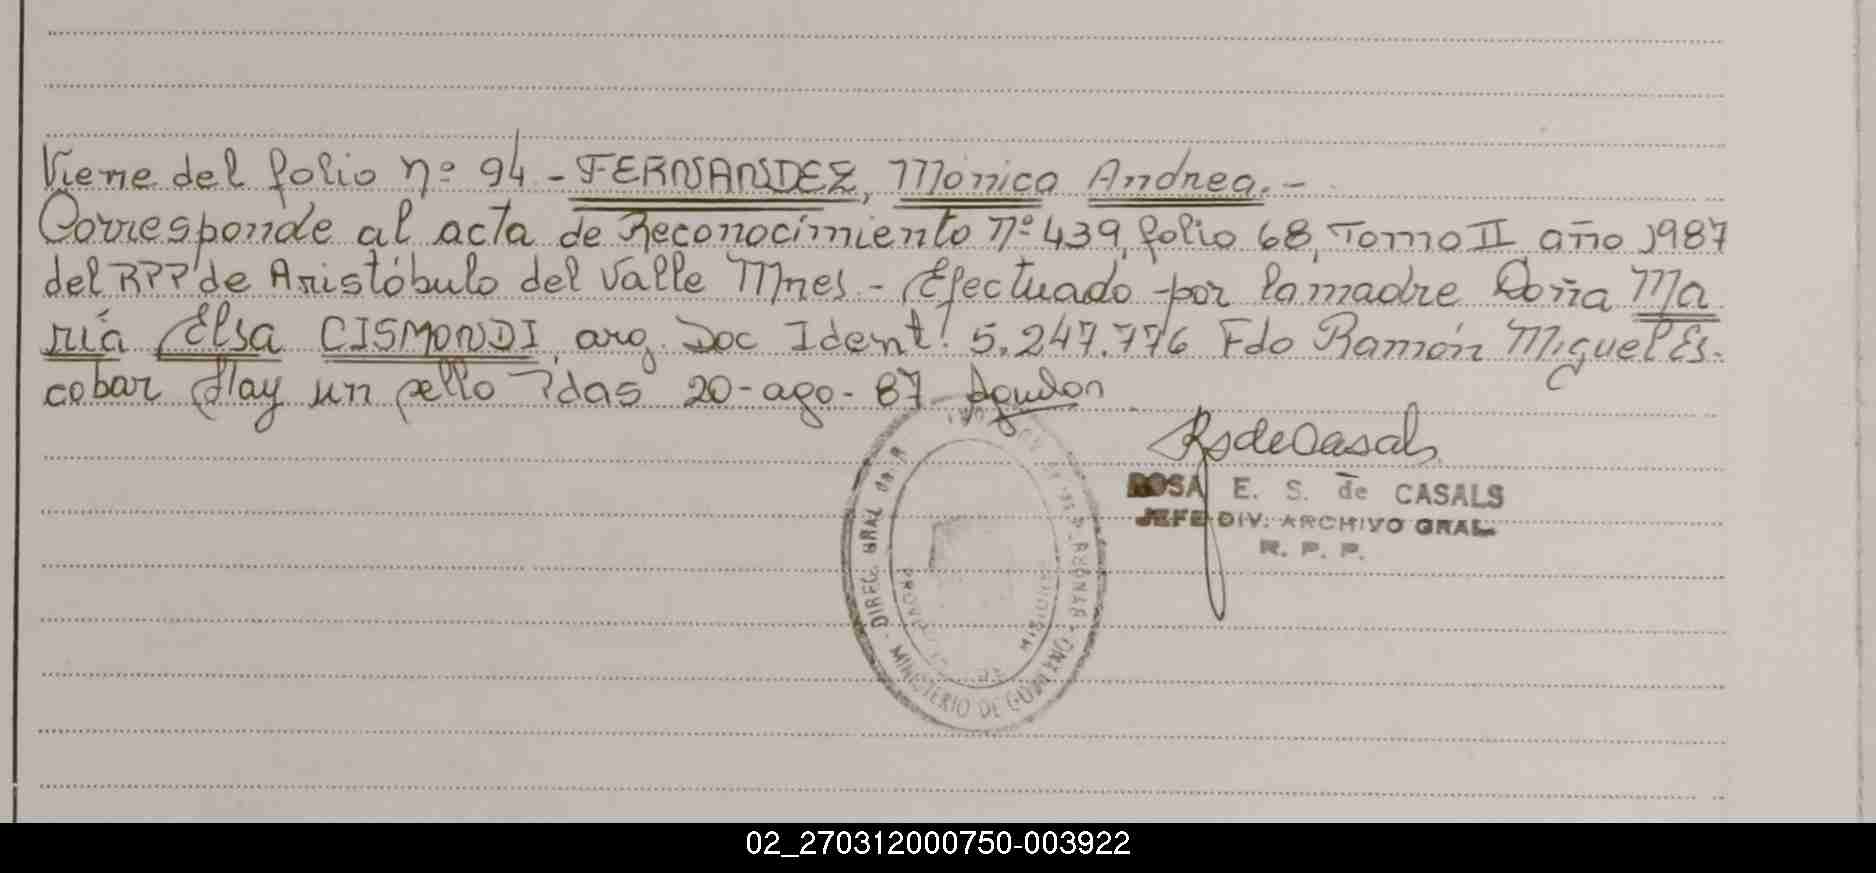 Viene del folio nº 94 - FERNANDEZ, Mónica Andrea. -
Corresponde al acta de Reconocimiento nº 439, folio 68, Tomo II año 1987
del RPP de Aristóbulo del Valle Mnes. - Efectuado por la madre Doña Ma
ría Elsa CISMONDI, arg. Doc Ident. 5.247.776 Fdo Ramón Miguel Es-
cobar Hay un sello Pdas 20-ago-87
RsdeCasals
ROSA E. S. de CASALS
JEFE DIV. ARCHIVO GRAL.
R. P. P.
DIREC. GRAL DEL R
MINISTERIO DE GOBIERNO
MISIONES
02_270312000750-003922